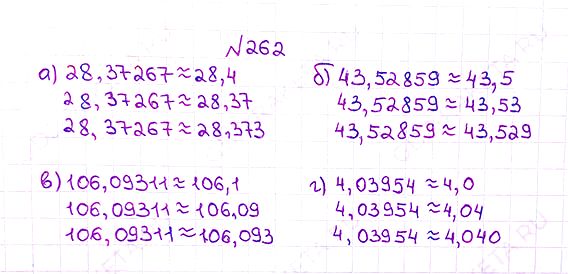 №262
а) 28,37267≈28,4
28,37267≈28,37
28,37267≈28,373
б) 43,52859≈43,5
43,52859≈43,53
43,52859≈43,529
в) 106,09311≈106,1
106,09311≈106,09
106,09311≈106,093
г) 4,03954≈4,0
4,03954≈4,04
4,03954≈4,040